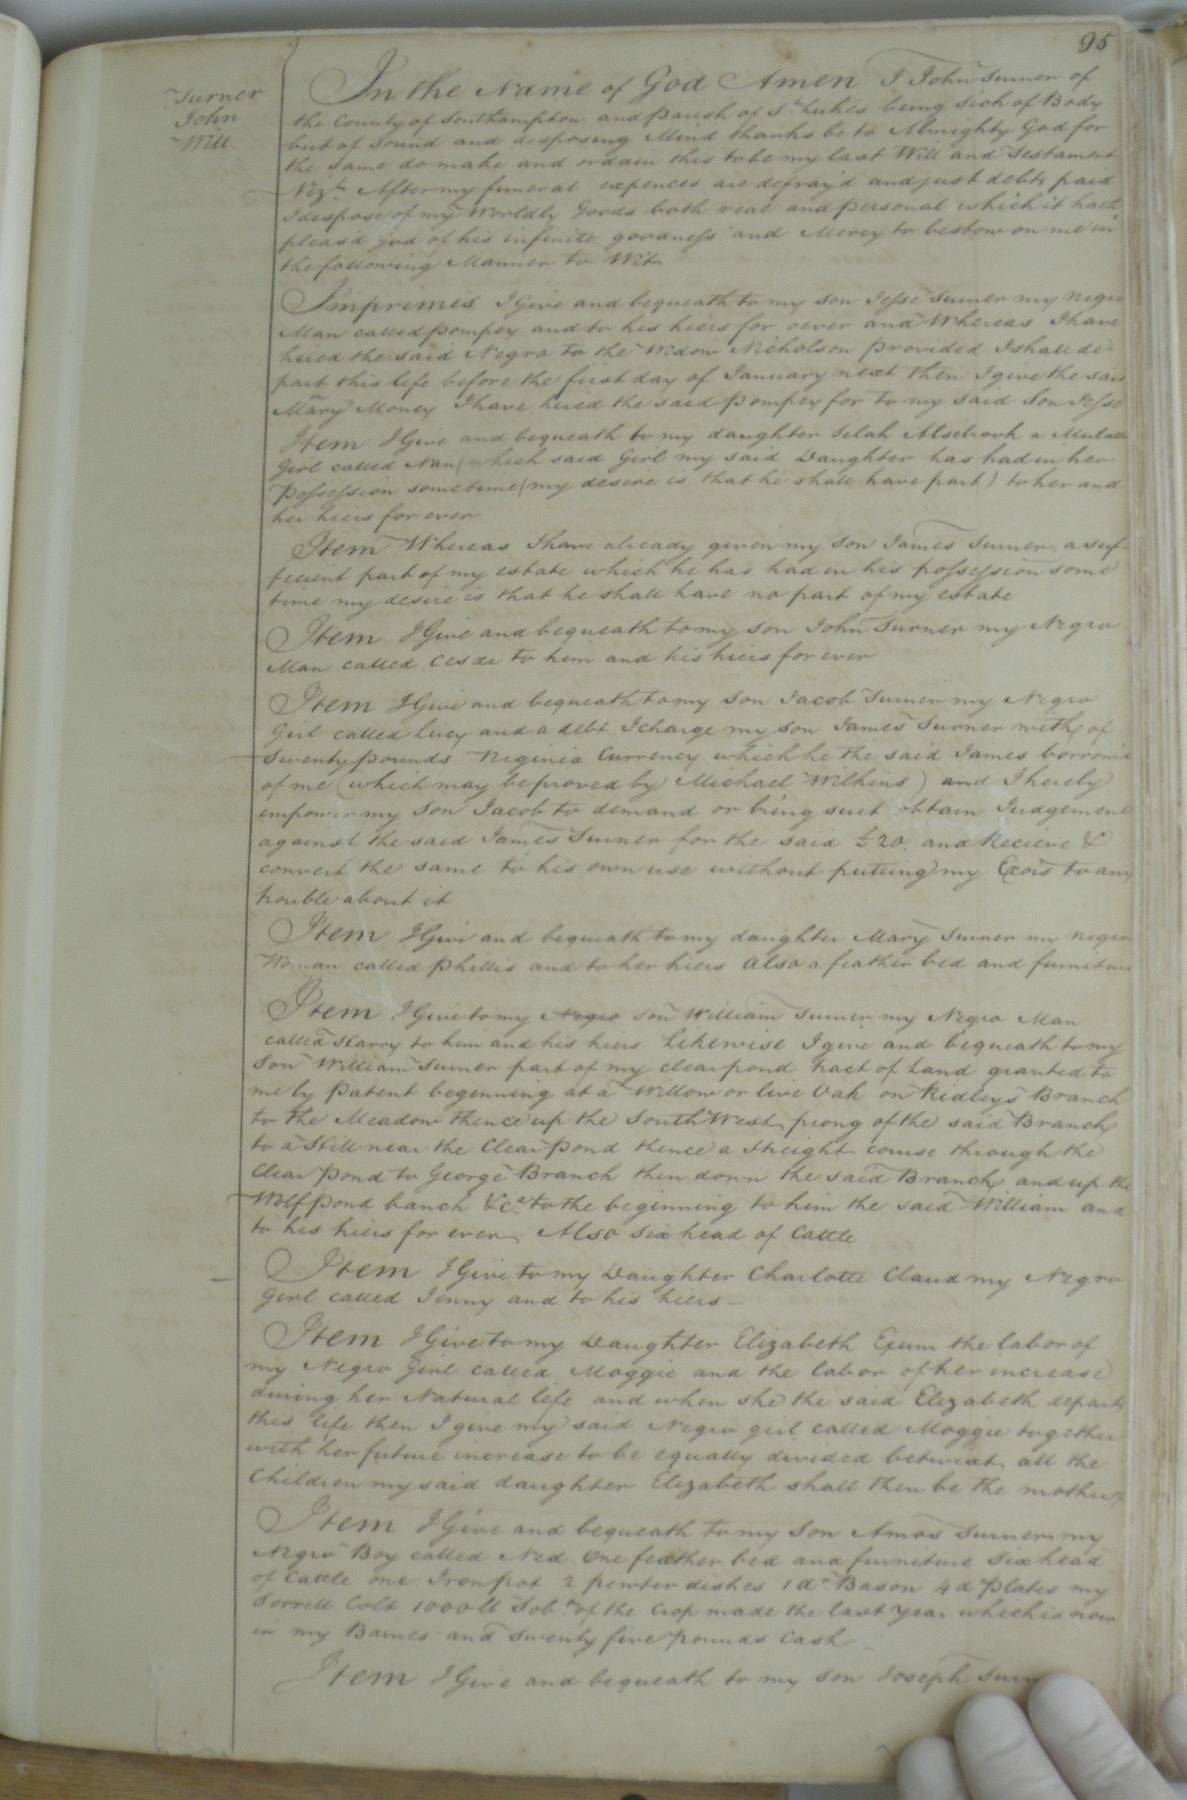 95
Turner
John
Will
In the Name of God Amen I John Turner of
the County of Southampton and parish of St. Lukes being sick of Body
but of sound and disposing Mind thanks be to Almighty God for
the same do make and ordain this to be my last Will and Testament
Vizt. After my funeral expences are defray'd and just debts paid
I dispose of my Worldly Goods both real and personal which it hath
pleas'd god of his infinite goodness and Mercy to bestow on me in
the following Manner to Wit
Imprimis I Give and bequeath to my son Jesse Turner my negro
Man called pompey and to his hiers for oever and Whereas I have
hired the said Negro to the Widow Nicholson provided I shall de-
part this life before the first day of January next then I give the said
Mary Money I have hired the said pompey for to my said Son Jesse
Item I Give and bequeath to my daughter Selah a Mulatto
Girl called Nan (which said Girl my said Daughter has had in her
Possession sometime (my desire is that he shall have part) to her and
her hiers for ever
Item Whereas I have already given my Son James Turner a suf-
ficient part of my estate which he has had in his possession some
time my desire is that he shall have no part of my estate
Item I Give and bequeath to my son John Turner my Negro
Man called to him and his hiers for ever
Item I Give and bequeath to my Son Jacob Turner my Negro
Girl called Lucy and a debt I charge my son James Turner with of
Twenty pounds Virginia Currency which he the said James borrow'd
of me (which may be proved by Michael Wilkins) and I hereby
impower my Son Jacob to demand or bring suit obtain Judgement
against the said James Turner for the said £20. and Recieve &
convert the same to his own use without putting my Exors to any
trouble about it
Item I Give and bequeath to my daughter Mary Turner my negro
Woman called phillis and to her hiers also a feather bed and furniture
Item I Give to my Negro son William Turner my Negro Man
called Harry to him and his hiers Likewise I give and bequeath to my
Son William Turner part of my clear pond tract of Land granted to
me by patent beginning at a Willow or live Oak on Ridleys Branch
to the Meadow thence up the South West prong of the said Branch
to a Still near the Clear Pond thence a streight course through the
Clear pond to George Branch then down the said Branch and up the
Wolf pond banch &ca. to the beginning to him the said William and
to his hiers for ever, Also six head of Cattle
Item I Give to my Daughter Charlotte Claud my Negro
Girl called Jenny and to his hiers
Item I Give to my Daughter Elizabeth Exum the labor of
my Negro Girl called Moggie and the labor of her increase
during her Natural life and when she the said Elizabeth departs
this life then I give my said Negro girl called Moggie together
with her future increase to be equally divided betwixt all the
Children my said daughter Elizabeth shall then be the mother
Item I Give and bequeath to my Son Amos Turner my
Negro Boy called Ned One feather bed and furniture six head
of Cattle one Iron pot 2 pewter dishes 1 do. Bason 4 d plates my
Sorrell Colt 1000lb Tobo. of the Crop made the last Year which is now
in my Barnes and Twenty five pounds Cash
Item I Give and bequeath to my son Joseph